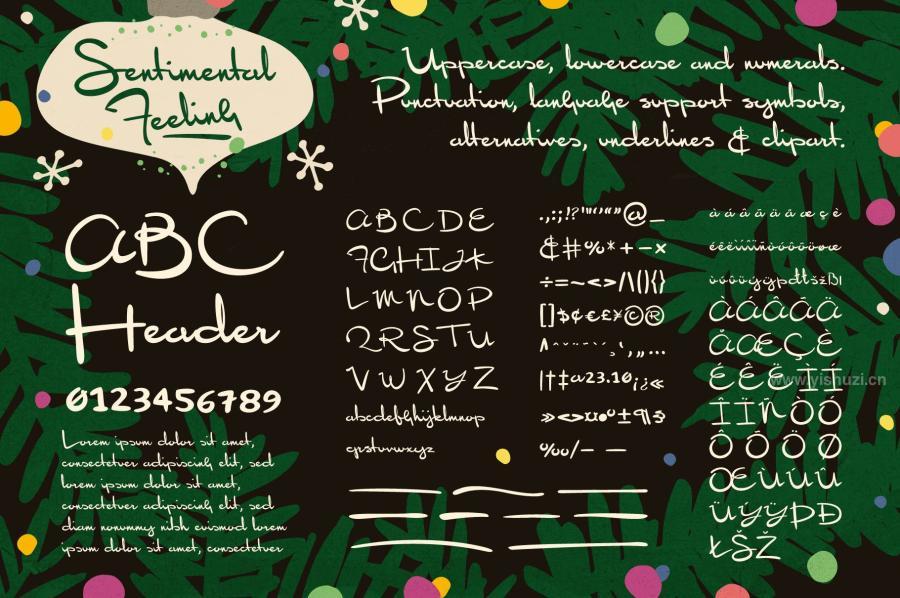 Sentimental
Feeling
Uppercase, lowercase and numerals.
Punctuation, language support symbols,
alternatives, underlines & clipart.
ABC
Header
0123456789
Lorem ipsum dolor sit amet,
consectetuer adipiscing elit, sed
lorem ipsum dolor sit amet,
consectetuer adipiscing elit, sed
diam nonummy nibh euismod lorem
ipsum dolor sit amet, consectetuer
ABCDE
FGHIJK
LMNOP
QRSTU
VWXYZ
abcdefghijklmnop
qrstuvwxyz
.,:;!?"'“”‘’@_
&#%*+-×
÷=~<>/\(){}
[]$¢€£¥©®
|†‡
‰/–—
àáâãäåæçè
ÀÁÂÃÄ
ÅÆÇÈ
ÉÊËÌÍ
ÎÏÑÒÓ
ÔÕÖØ
ŒÙÚÛ
ÜÝŸÞÐ
ŁŠŽ
www.yishuzi.cn